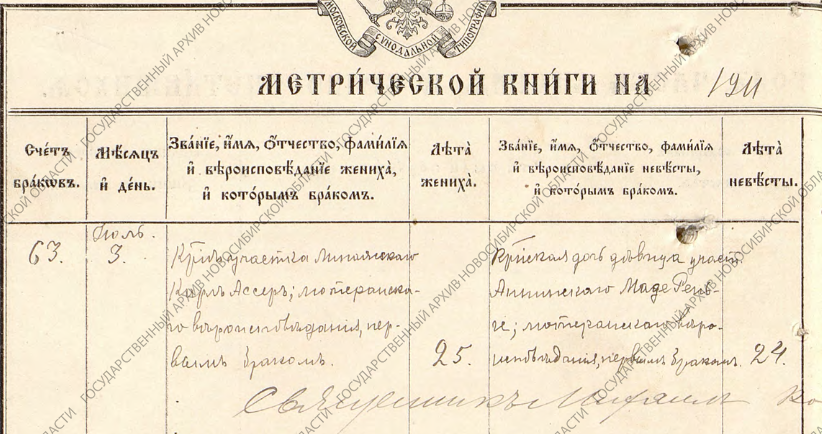 МОСКОВСКОЙ СѴНОДАЛЬНОЙ ТИПОГРАФІИ
МЕТРИ́ЧЕСКОЙ КНИ́ГИ НА 1911
Сче́тъ бра́кѡвъ.
Мѣ́сяцъ и҆ де́нь.
Зва́нїе, и҆́мя, ѻ҆́тчество, фами́лїя
и҆ вѣроисповѣ́данїе жениха̀,
и҆ кото́рымъ бра́комъ.
Лѣ́та жениха̀.
Зва́нїе, и҆́мя, ѻ҆́тчество, фами́лїя
и҆ вѣроисповѣ́данїе невѣ́сты,
и҆ кото́рымъ бра́комъ.
Лѣ́та невѣ́сты.
63.
Іюль.
3.
Кр-нъ участка
Карлъ Ассеръ; лютеранска-
го вѣроисповѣданія, пер-
вымъ бракомъ.
25.
Кр-нская дочь дѣвица участ.
Аннинскаго Маде Рень-
ге; лютеранскаго вѣро-
исповѣданія, первымъ бракомъ.
24.
Священникъ Михаилъ
ГОСУДАРСТВЕННЫЙ АРХИВ НОВОСИБИРСКОЙ ОБЛАСТИ